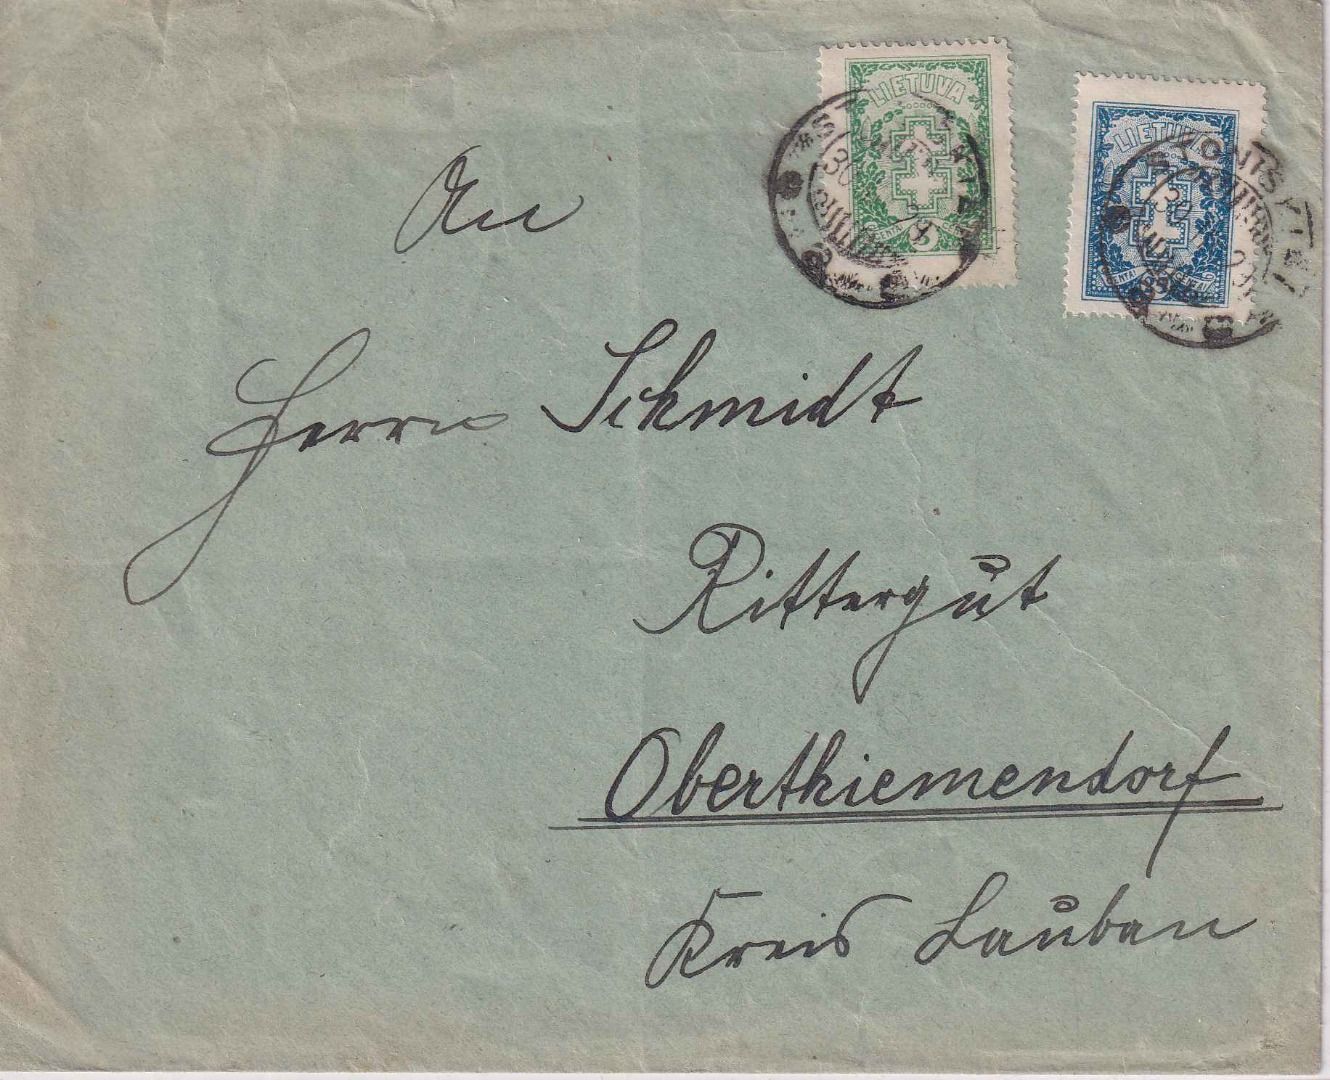 LIETUVA
5
CENTAI
LIETUVA
CENTAI
An
Herrn Schmidt
Rittergut
Oberthiemendorf
Kreis Lauban